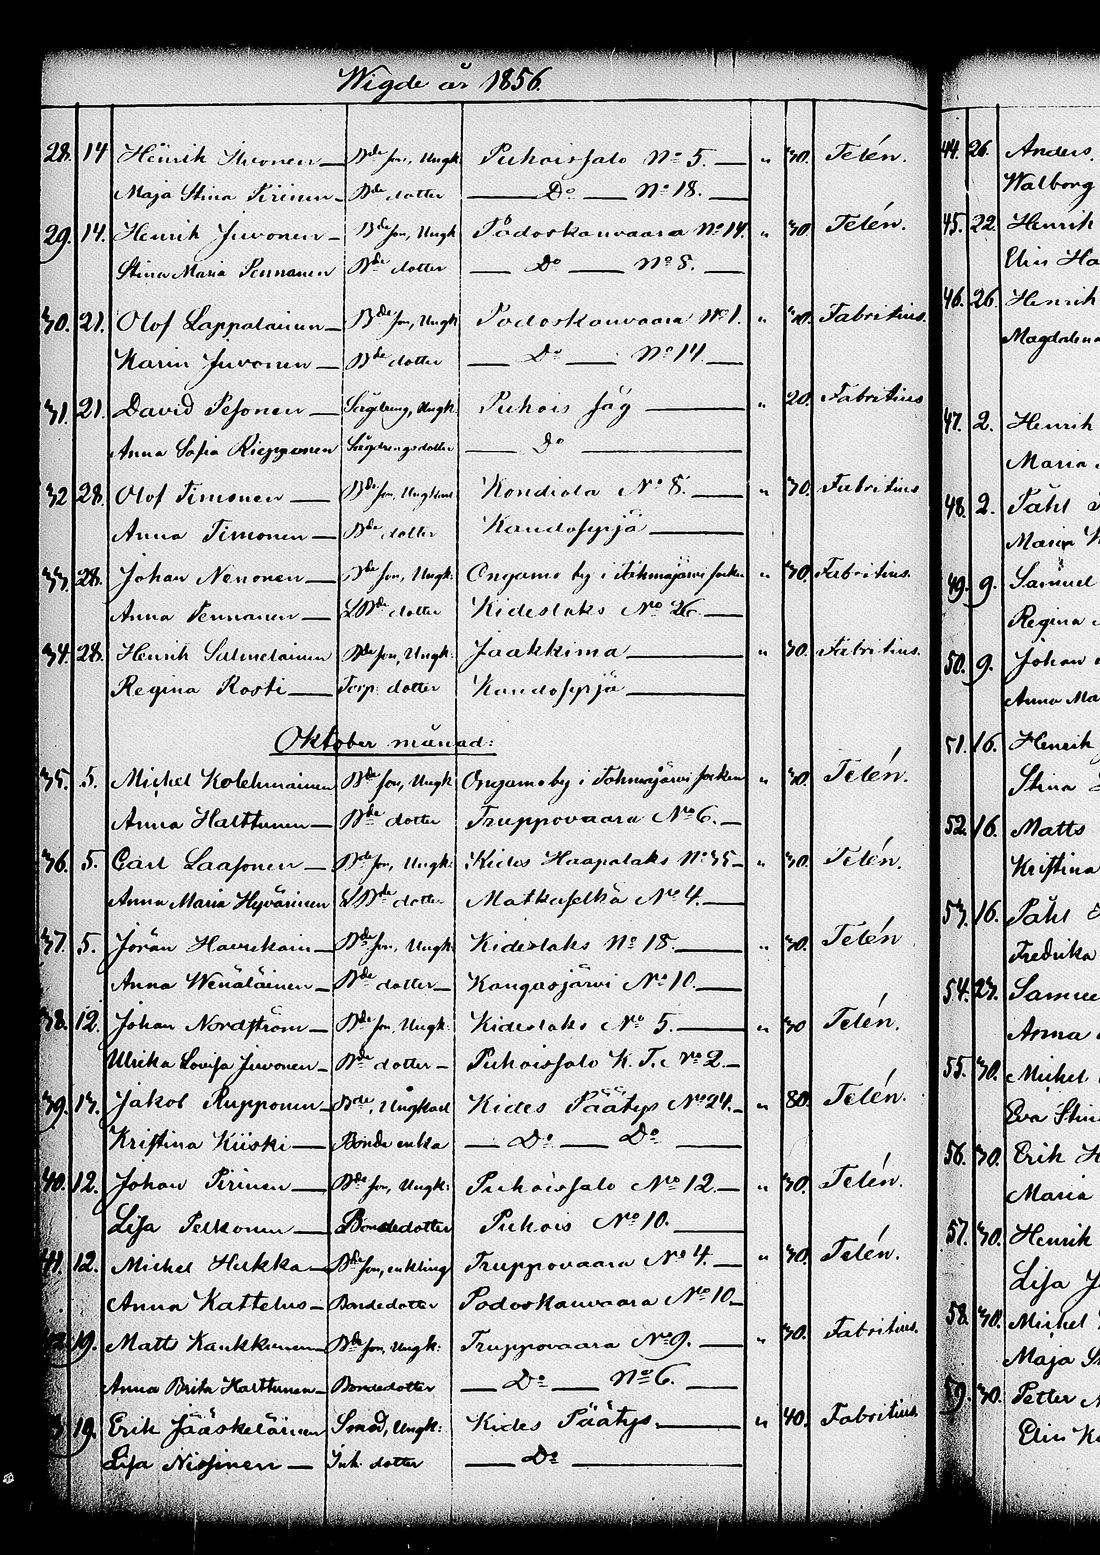 Wigde år 1856.
28. 14 Henrik Ihvonen — Bde son, Ungk. Puhoissalo No 5. — " 30. Telén.
Maja Stina Pirinen — Bde dotter — Do — No 18. —
29. 14. Henrik Juvonen — Bde son, Ungk Podoskanvaara No 14. " 30. Telén.
Stina Maria Pennanen Bde dotter — Do — No 8. —
30. 21. Olof Lappalainen — Bde son, Ungk Podoskanvaara No 1. " 30. Fabritius.
Karin Juvonen — Bde dotter — Do — No 14. —
31. 21. David Pesonen — Ungk. Puhois såg — " 20. Fabritius
Anna Sofia Riepponen Do —
32 28. Olof Timonen — Bde son, Ungkarl Kondiola No 8. — " 30. Fabritius
Anna Timonen — Bde dotter Kandossyjä —
33. 28. Johan Nenonen — Bde son, Ungk: Ongamo by i Tohmajärvi socken " 30. Fabritius.
Anna Pennanen — LBde dotter Kideslaks No 26. —
34. 28. Henrik Salmelainen Bde son, Ungk: Jaakkima — " 30. Fabritius.
Regina Rosti — Torp. dotter Kandossyjä —
Oktober månad:
35. 5. Michel Kolehmainen Bde son, Ungk Ongamo by i Tohmajärvi socken " 30. Telén.
Anna Halttunen — Bde dotter Truppovaara No 6. —
36. 5. Carl Laasonen — Bde son, Ungk. Kides Haapalaks No 35 — " 30. Telén.
Anna Maria Hyvärinen LBde dotter Matkaselkä No 4. —
37. 5. Jöran Haverkain — Bde son, Ungk. Kideslaks No 18. — " 30. Telén
Anna Wenäläinen — Bde dotter — Kangasjärvi No 10. —
38. 12. Johan Nordström — Bde son, Ungk. Kideslaks No 5. — " 30 Telén.
Ulrika Lovisa Juvonen — Bde dotter — Puhoissalo K. T. No 2. —
39. 13. Jakob Rupponen — Bde, Ungkarl Kides Päätys No 24. — " 80. Telén.
Kristina Kiiski — Bonde enka — Do — Do —
40. 12. Johan Pirinen — Bde son, Ungk: Puhoissalo No 12. — " 30. Telén.
Lisa Pelkonen — Bondedotter Puhois No 10. —
41. 12. Michel Hukka — Bde son, enkling Truppovaara No 4. — " 30. Telén.
Anna Kattelus — Bondedotter Podoskanvaara No 10 —
42. 19. Matts Kaukkunen — Bde son, Ungk: Truppovaara No 9. — " 30. Fabritius.
Anna Brita Harttunen — Bondedotter — Do — No 6. —
3. 19. Erik Jääskeläinen Smed, Ungk: Kides Päätys. — " 40. Fabritius.
Lisa Nissinen — Inh. dotter — Do —
44. 26. Anders.
Walborg
45. 22. Henrik
Elin Ha
46. 26. Henrik
Magdalena
47. 2. Henrik
Maria
48. 2. Påhl
Maria
49. 9. Samuel
Regina
50. 9. Johan
Anna Ma
51. 16. Henrik
Stina
52. 16. Matts
Kristina
53. 16. Påhl
Fredrika
54. 23. Samue
Anna
55. 30. Michel
Eva Stin
56. 30. Erik
Maria
57. 30. Henrik
Lisa
58. 30. Michel
Maja
59. 30. Petter
Elin